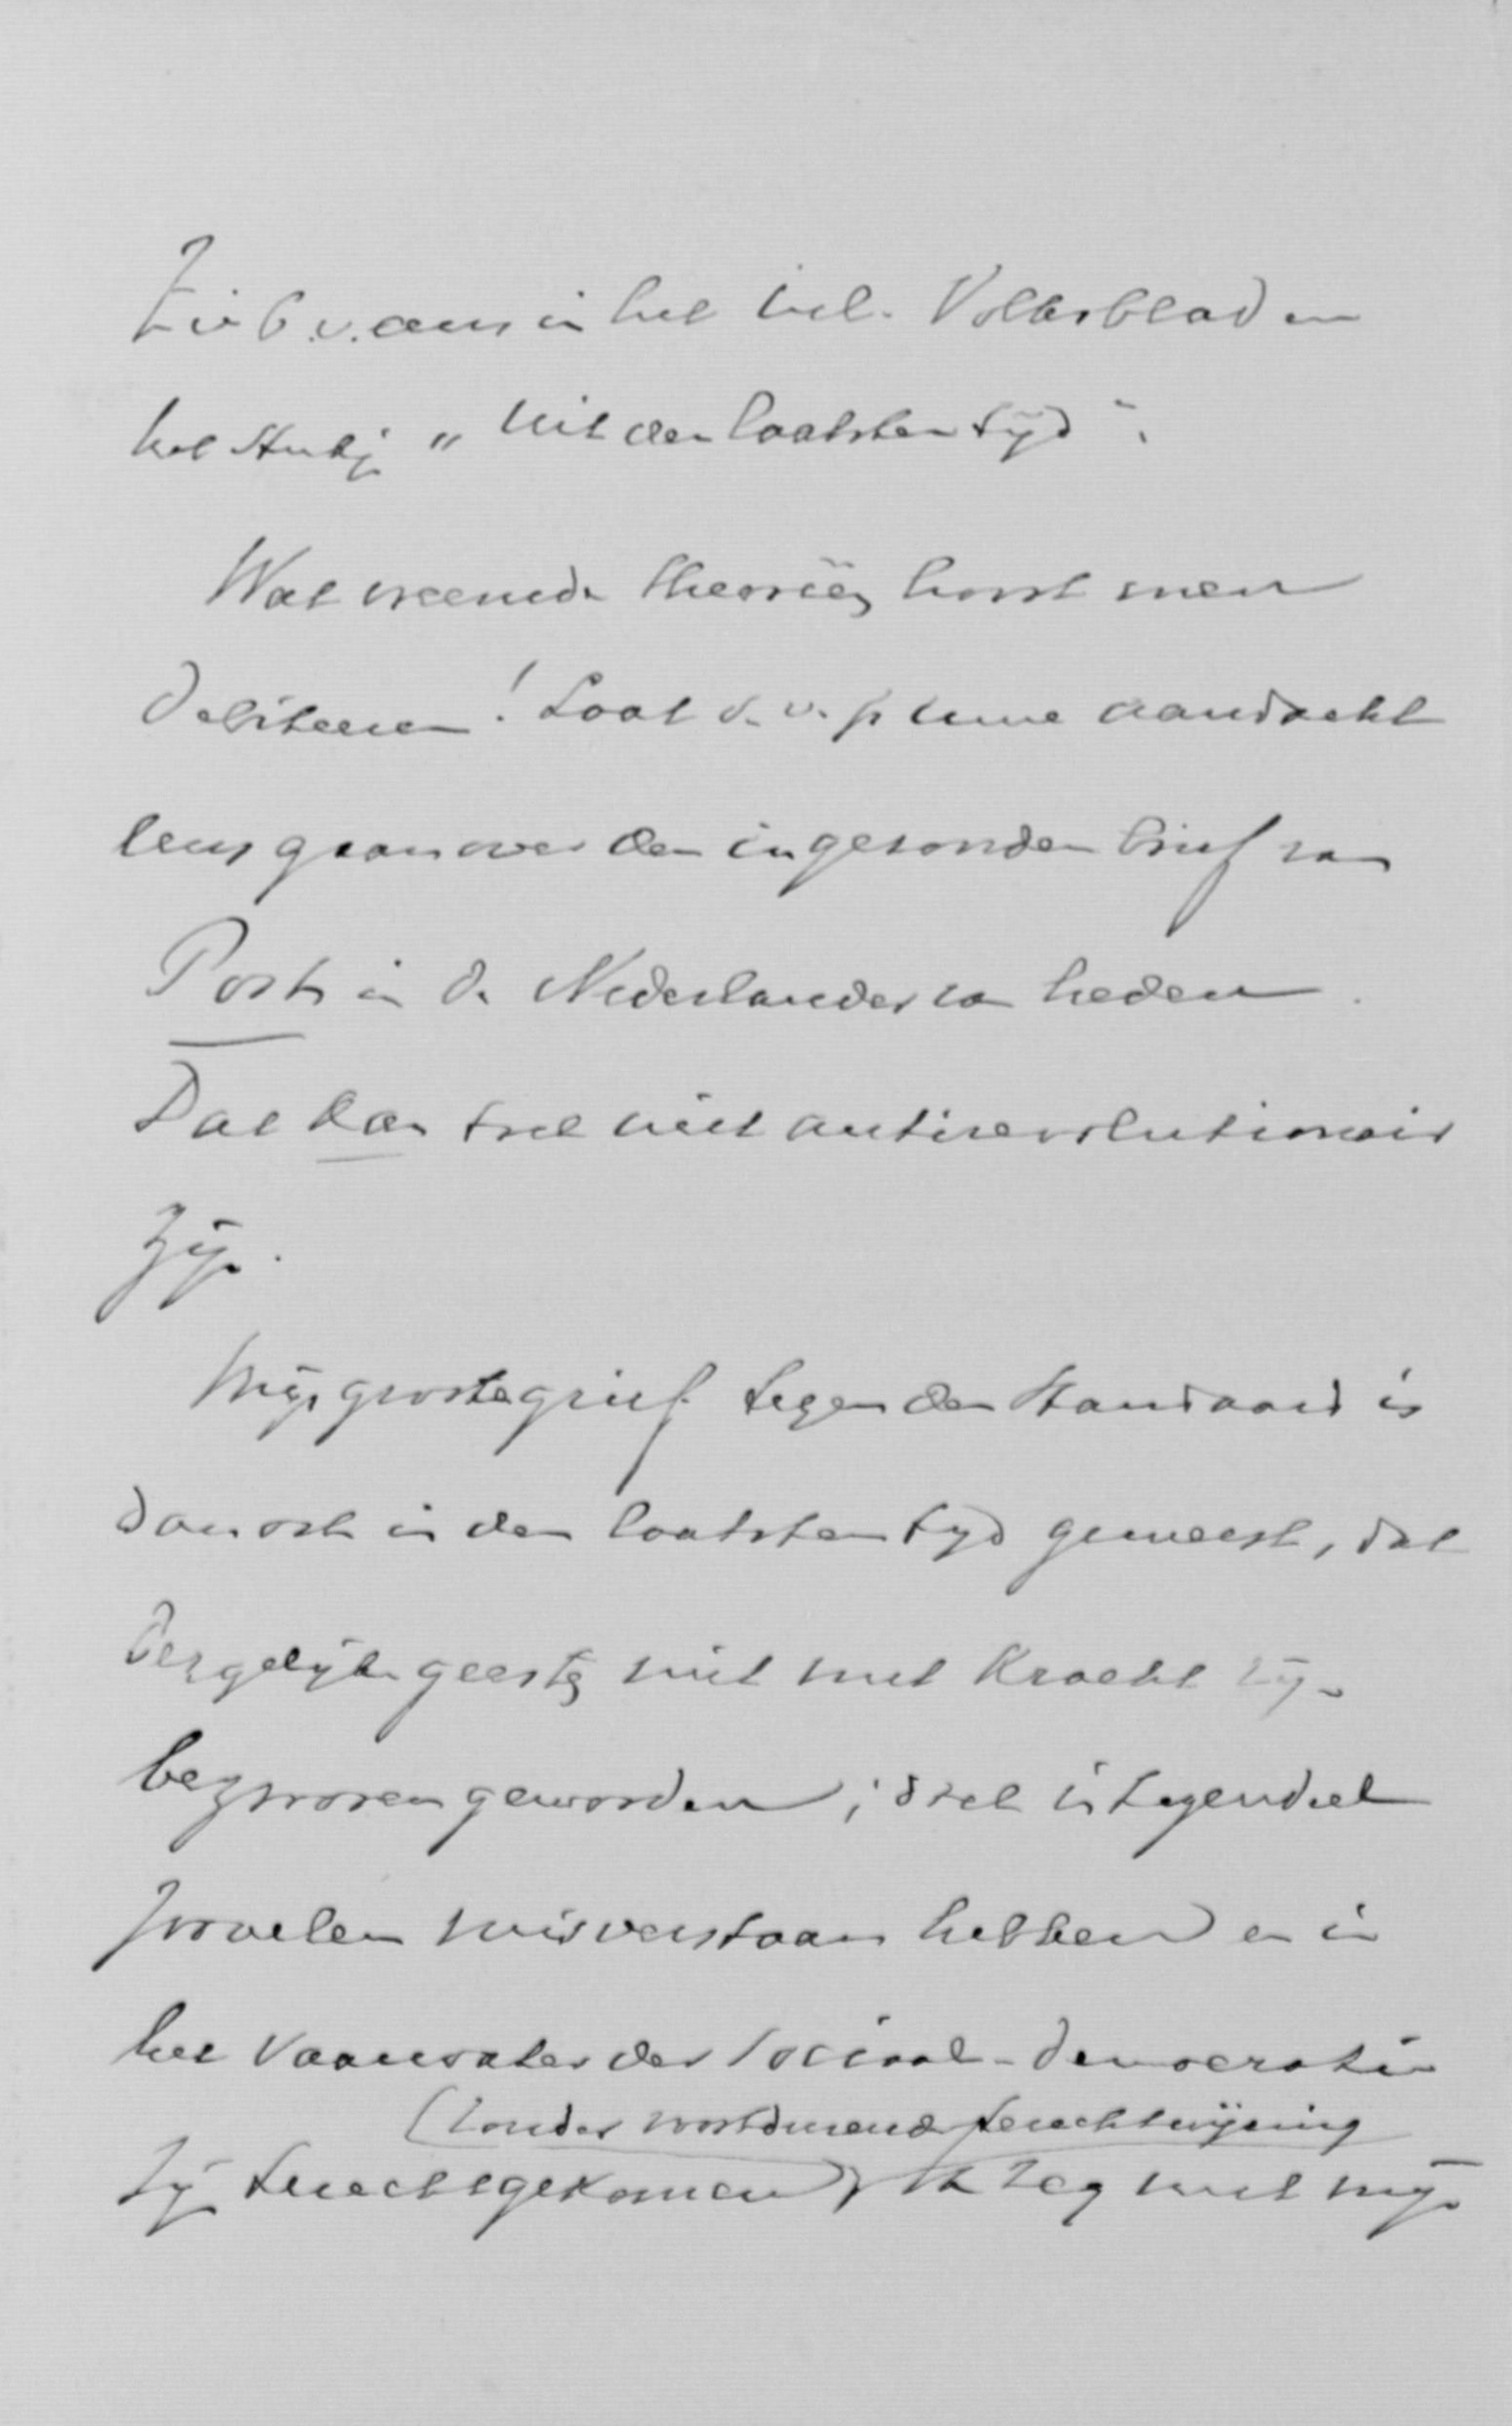 Zie b.v. eens in het Volksblad en
het Stukje „Uit den laatsten tijd".
Wat vreemde theorieën hoort men
debiteeren! Laat s.v.p. Uwe aandacht
eens gaan over den ingezonden brief van
Post in de Nederlander van heden.
Dat kan toch niet antirevolutionair
zijn.
Mijn grootste grief tegen den Standaard is
dan ook in den laatsten tijd geweest, dat
dergelijke geesten niet met kracht zijn
bezworen geworden; doch integendeel
zoovelen misverstaan hebben en in
het vaarwater der sociaal-democratie
(zonder voortdurende terechtwijzing
zijn terechtgekomen) Ik zeg niet mijn